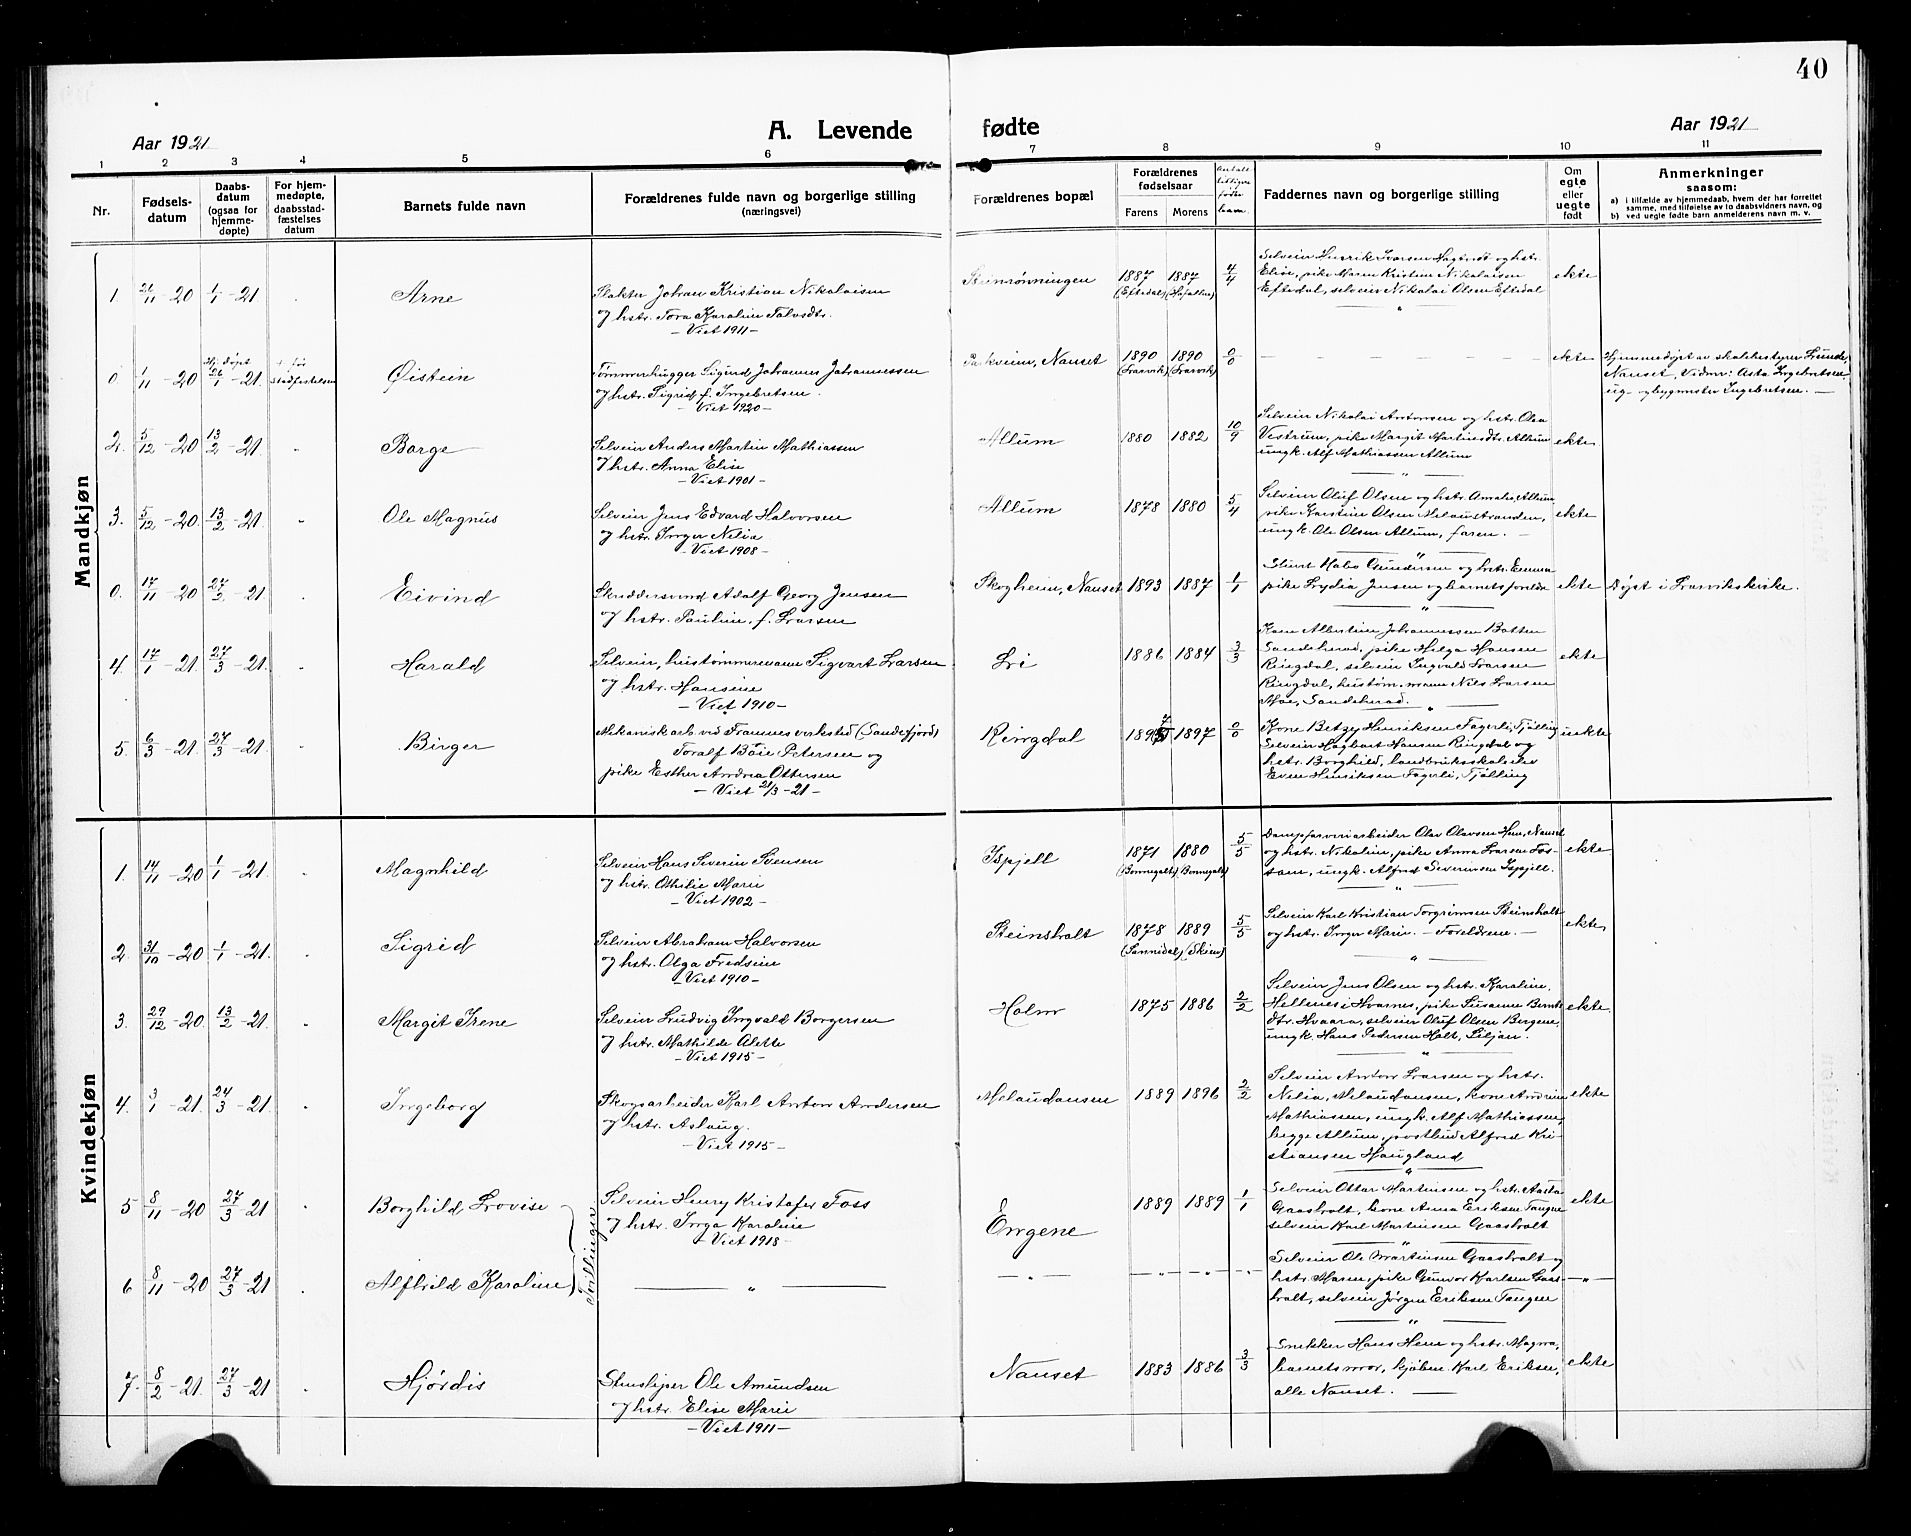 40
Aar 1921
A. Levende fødte
Aar 1921
1 2 3 4 5 6 7 8 9 10 11
Nr.
Fødsels-
datum
Daabs-
datum
(ogsaa for
hjemme-
døpte)
For hjem-
medøpte,
daabsstad-
fæstelses
datum
Barnets fulde navn
Forældrenes fulde navn og borgerlige stilling
(næringsvei)
Forældrenes bopæl
Forældrenes
fødselsaar
Farens Morens
Faddernes navn og borgerlige stilling
Om
egte
eller
uegte
født
Anmerkninger
saasom:
a) i tilfælde av hjemmedaab, hvem der har forrettet
samme, med tilføielse av to daabsvidners navn, og
b) ved uegte fødte barn anmelderens navn m. v.
Mandkjøn
1. 26/11 - 20 1/1 - 21 Arne
Slakter Johan Kristian Nikolaisen
og hstr. Tora Karoline Talvsdtr.
- Viet 1911 -
Steinrønningen 1887 1887 4/4
(Eftedal)
Selveier Henrik Ivarsen Hagtvedt og hstr.
Elise, pike Maren Kristine Nikolaisen
Eftedal, selveier Nikolai Olsen Eftedal
ekte
0. 1/11 - 20 Hj. døpt 26/1 - 21. Øistein
stadfestelsen
Tømmerhugger Sigurd Johannes Johannessen
og hstr. Sigrid f. Ingebretsen.
- Viet 1920 -
Parkveien, Nanset 1890 1890 0/0
(Larvik) (Larvik)
ekte
Hjemmedøpt av skolebestyrer Lunde,
Nanset, Vidner: Asta Ingebretsen,
og bygmester Ingebretsen. -
2. 5/12 - 20 13/2 - 21 Borge
Selveier Anders Martin Mathiassen
og hstr. Anna Elise
- Viet 1901 -
Allum 1880 1882 10/9
Selveier Nikolai Antonsen og hstr. Olea
Vestrum, pike Margit Martinsdtr. Allum
ungk. Alf Mathiassen Allum
ekte
3. 5/12 - 20. 13/2 - 21. Ole Magnus
Selveier Jens Edvard Halvorsen
og hstr. Inger Nelia
- Viet 1908 -
Allum 1878 1880 5/4
Selveier Oluf Olsen og hstr. Amalie, Allum
pike Karstine Olsen Melaustranden,
ungk. Ole Olsen Allum, faren. -
ekte
0. 17/11 - 20 27/2 - 21 Eivind
Skreddersvend Adolf Georg Jensen
og hstr. Pauline, f. Larsen
Skogheim, Nanset 1893 1887 1/1
Gundersen og hstr. Emma
pike Lydia Jensen og barnets foreldre
ekte
Døpt i Larvikskirke.
4. 17/1 - 21. 27/3 - 21. Harald
Selveier, hustømmermann Sigvart Larsen
og hstr. Hansine
- Viet 1910 -
Li 1886 1884 3/3
Kone Albertine Johannessen Botten
Sandeherad, pike Helga Hansen
Ringdal, selveier Ingvald Larsen
Ringdal, hustøm.mann Nils Larsen
Moe, Sandeherad.
ekte
5. 6/3 - 21. 27/3 - 21. Birger
Mekanisk arb. ved Framnes verksted (Sandefjord)
Toralf Bøie Petersen og
pike Esther Andrea Ottersen
- Viet 21/3 - 21 -
Ringdal 1897 1897 0/0
Kone Betzy Henriksen Fagerli, Tjølling
Selveier Hagbart Hansen Ringdal og
hstr. Borghild, landbrukskolelev
Even Henriksen Fagerli, Tjølling
uekte
Kvindekjøn
1. 14/11 - 20 1/1 - 21. Magnhild
Selveier Hans Severin Svensen
og hstr. Othilie Marie
- Viet 1902 -
Ispjell 1871 1880 5/5
(Bonnegolt) (Bonnegolt)
Dampfarveriarbeider Olav Olavsen Hem, Nanset
og hstr. Nikoline, pike Anna Larsen Fos-
sam, ungk. Alfred Severinsen Ispjell.
ekte
2. 31/10 - 20 1/1 - 21. Sigrid
Selveier Abraham Halvorsen
og hstr. Olga Fredsine
- Viet 1910 -
Steinsholt 1878 1889 5/5
(Sannidal) (Skien)
Selveier Karl Kristian Torgrimsen Steinsholt
og hstr. Inger Marie. - Foreldrene. -
ekte
3. 29/12 - 20. 13/2 - 21. Margit Irene
Selveier Ludvig Ingvald Borgersen
og hstr. Mathilde Alette
- Viet 1915 -
Holm 1875 1886 2/2
Selveier Jens Olsen og hstr. Karoline,
Hellenes i Hvarnes, pike Susanne Bernts-
dtr. Hvaara, selveier Oluf Olsen Bergene,
ungk. Hans Pedersen Holt, Siljan.
ekte.
4. 3/1 - 21. 24/3 - 21. Ingeborg
Skogsarbeider Karl Anton Andersen
og hstr. Aslaug.
- Viet 1915 -
Melaudansen 1889 1896 2/2
Selveier Anton Larsen og hstr.
Nelia, Melaudansen, kone Andrine
Mathiassen, ungk. Alf Mathiassen,
begge Allum, postbud Alfred Kri-
stiansen Haugland
ekte
5 8/11 - 20 27/3 - 21 Borghild Lovise
Tvillinger
Selveier Henry Kristofer Foss
og hstr. Inga Karoline
- Viet 1918 -
Engene 1889 1889 1/1
Selveier Ottar Martinsen og hstr. Aasta
Gaasholt, kone Anna Eriksen Tangen
selveier Karl Martinsen Gaasholt
ekte
6 8/11 - 20 27/3 - 21 Alfhild Karoline
— „ —
— „ — — „ — „ — „ —
Selveier Ole Martinsen Gaasholt og
hstr. Maren, pike Gunvor Karlsen Gaas-
holt, selveier Jørgen Eriksen Tangen
— „ —
7. 8/2 - 21. 27/3 - 21 Hjørdis
Stenstøper Ole Amundsen
og hstr. Elise Marie
- Viet 1911 -
Nanset 1883 1886 3/3
Snekker Hans Hem og hstr. Magna,
barnets mor, kjøbm. Karl Eriksen,
alle Nanset. —
ekte